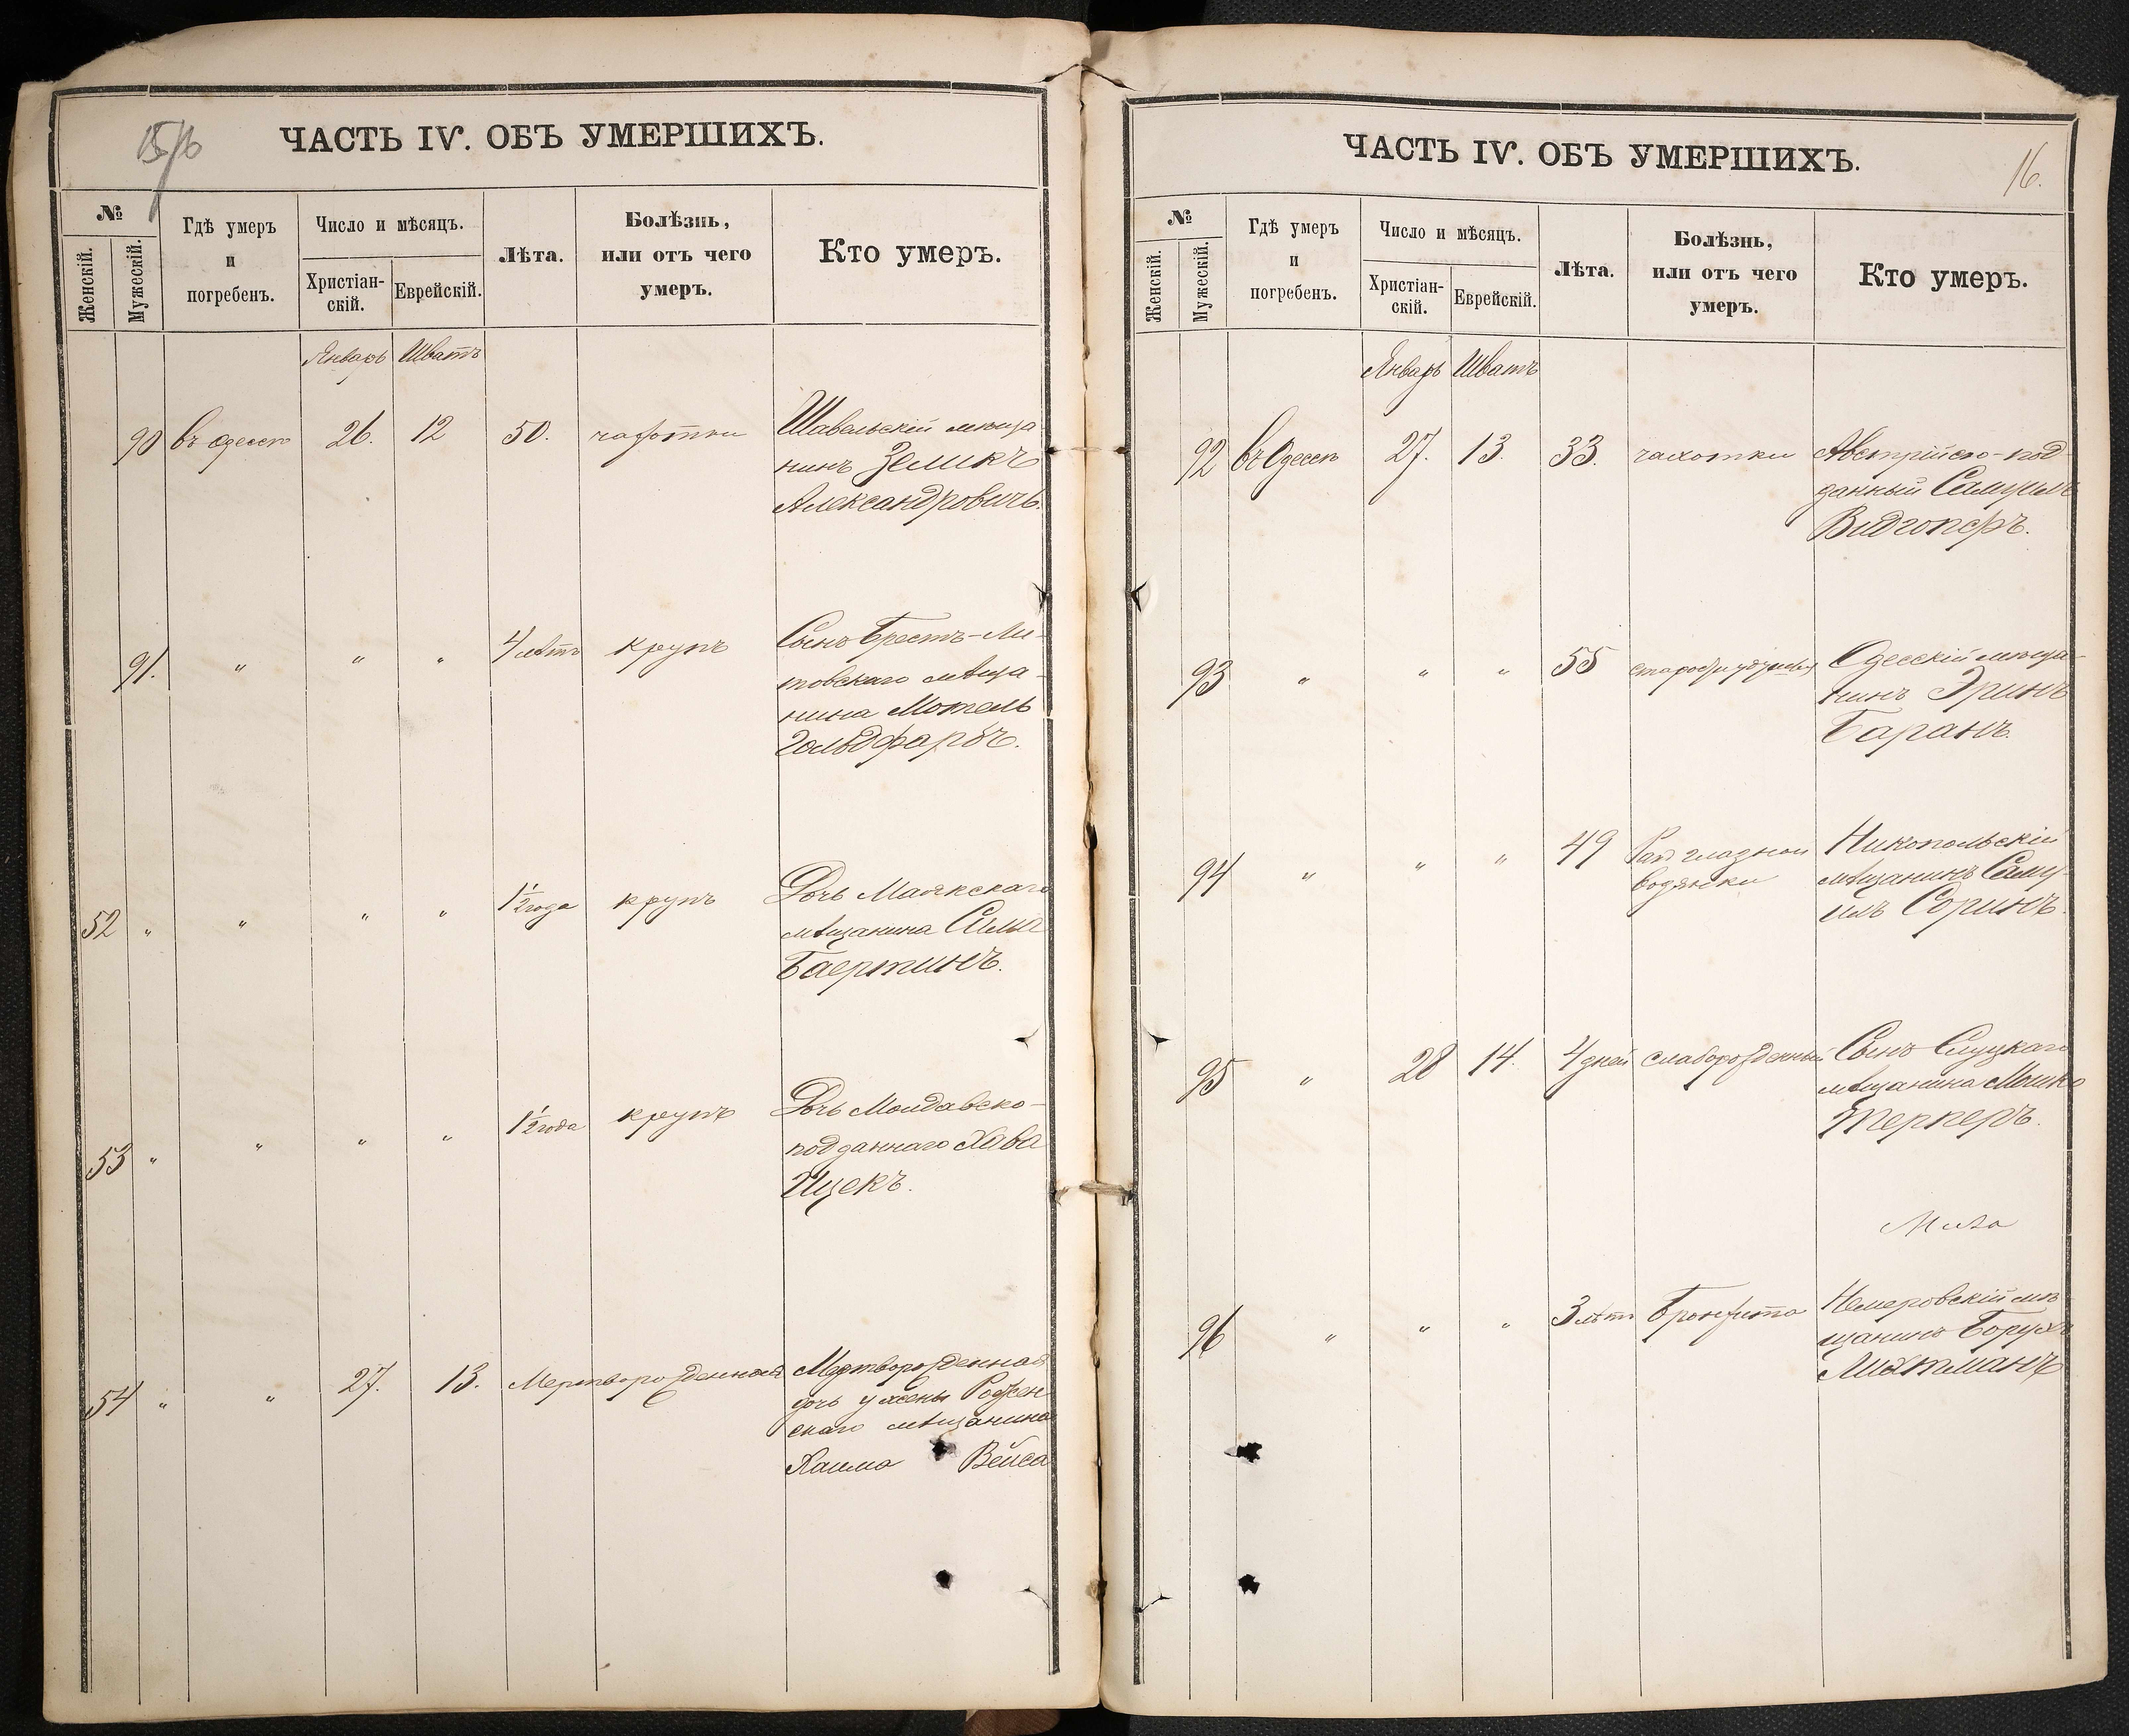 ЧАСТЬ IV. ОБЪ УМЕРШИХЪ.
№
Женскій.
Мужескій.
Гдѣ умеръ
и
погребенъ.
Число и мѣсяцъ.
Христіан-
скій.
Еврейскій.
Лѣта.
Болѣзнь,
или отъ чего
умеръ.
Кто умеръ.
Январь Шватъ
90 въ Одессѣ 26. 12 50. чахотки Шавельскій мѣща
нинъ Зеликъ
Александровичъ.
91. " " " 4 лѣтъ крупъ Сынъ Брестъ-Ли-
товскаго мѣща-
нина Мотель
Гольдфарбъ.
52 " " " " 1½ года крупъ Дочь Маякскаго
мѣщанина Сима
Баертинъ.
53 " " " " 1½ года крупъ Дочь Молдавско-
подданнаго Хава
Ицекъ.
54 " " 27. 13. Мертворожденная Мертворожденная
дочь у жены
скаго мѣщанина
Хаима Вейса
ЧАСТЬ IV. ОБЪ УМЕРШИХЪ.
16.
№
Женскій.
Мужескій.
Гдѣ умеръ
и
погребенъ.
Число и мѣсяцъ.
Христіан-
скій.
Еврейскій.
Лѣта.
Болѣзнь,
или отъ чего
умеръ.
Кто умеръ.
Январь Шватъ
92 въ Одессѣ 27. 13. 33. чахотки Австрійско-под-
данный Самуилъ
Видгопфъ.
93 " " " 55 Одесскій мѣща-
нинъ Эринъ
Баранъ.
94 " " " 49 Никопольскій
водянки мѣщанинъ Саму-
илъ Соринъ.
95 " 28 14. 4 дней слаборожденный Сынъ Слуцкаго
мѣщанина Мошко
Терперъ.
96 " " " 3 лѣтъ Бронхита Немировскій мѣ-
щанинъ Борухъ
Лихтманъ